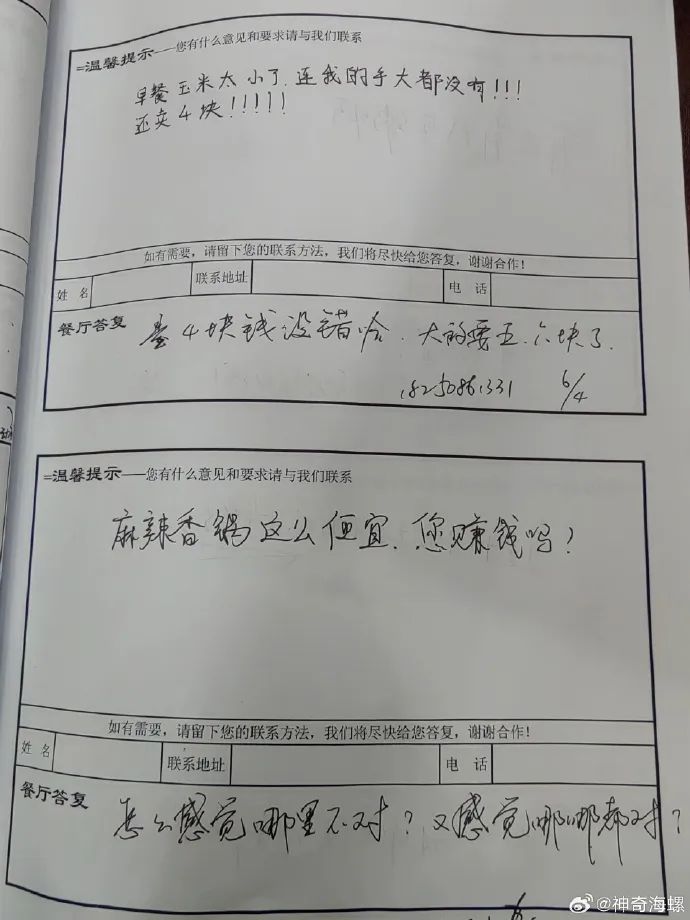 =温馨提示——您有什么意见和要求请与我们联系
早餐玉米太小了，连我的手大都没有!!!
还卖4块!!!!!
如有需要，请留下您的联系方法，我们将尽快给您答复，谢谢合作!
姓 名 联系地址 电 话
餐厅答复 4块钱没错哈，大的要五、六块了.
18250861331 6/4
=温馨提示——您有什么意见和要求请与我们联系
麻辣香锅这么便宜，您赚钱吗?
如有需要，请留下您的联系方法，我们将尽快给您答复，谢谢合作!
姓 名 联系地址 电 话
餐厅答复 怎么感觉哪里不对? 又感觉哪哪都对?
@神奇海螺